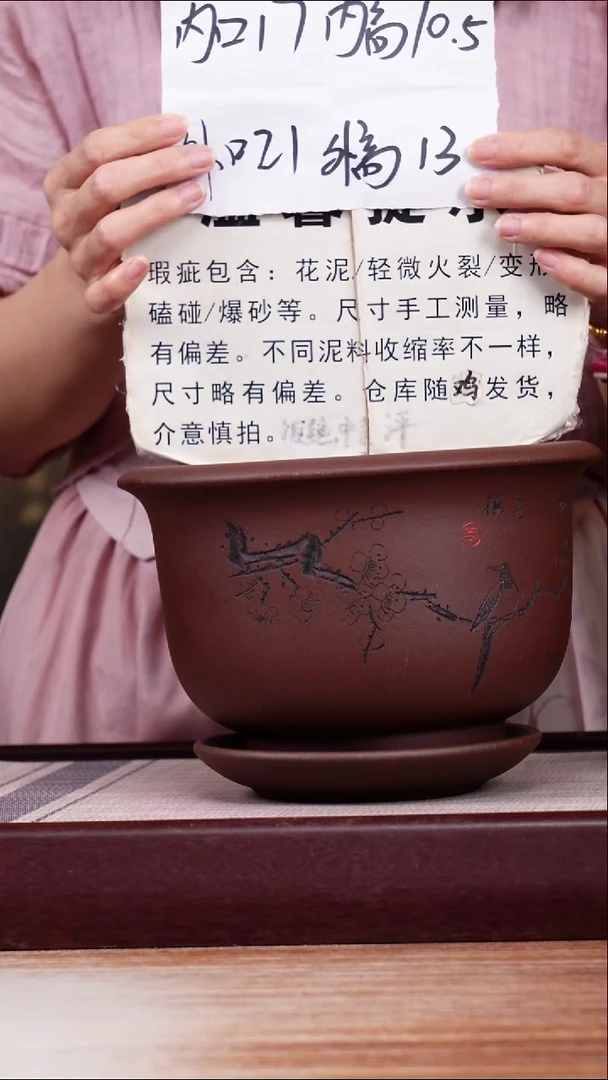 内口17 内高10.5
外口21 外高13
温馨提示
瑕疵包含：花泥/轻微火裂/变形
磕碰/爆砂等。尺寸手工测量，略
有偏差。不同泥料收缩率不一样，
尺寸略有偏差。仓库随鸡发货，
介意慎拍。